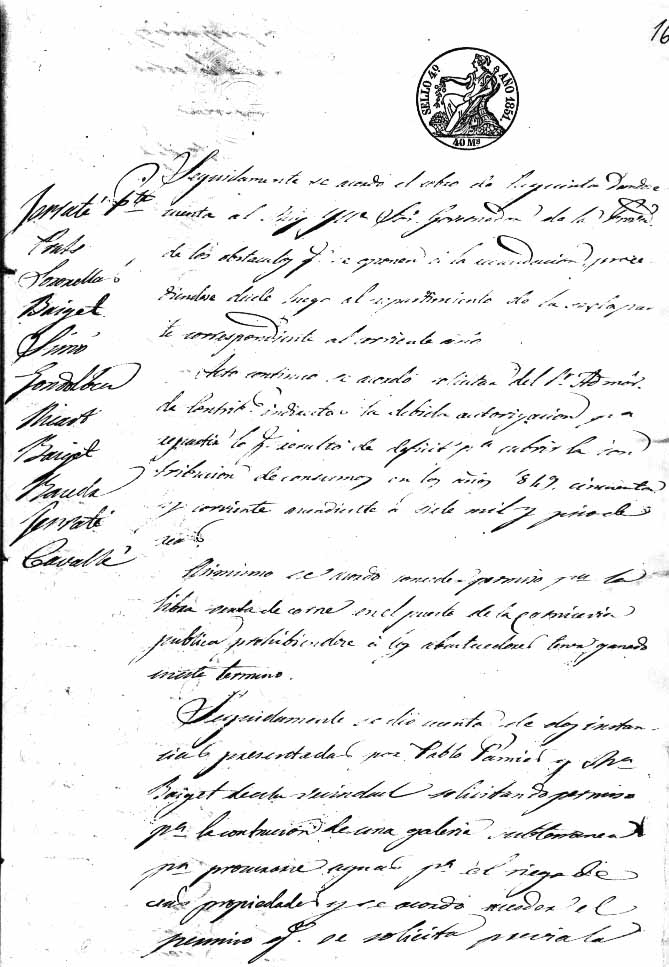 16
SELLO 4º AÑO 1851.
40 Ms
Pte
Baiget
Simó
Gondolbeu
Ricart
Baiget
Cavallé
Seguidamente se acordó el cobro de dandose
cuenta al Muy Ylle Sor. Governador de la
de los obstaculos q. se oponen á la recaudacion, proce-
diendose desde luego al repartimiento de la sesta par-
te correspondiente al corriente año.
Acto continuo se acordó solicitar del Sr. Admor.
de Contrib. indirectas la debida autorizacion pra
repartir lo q. resulta de deficit pa. cubrir la con
tribucion de consumos en los años 849. cincuenta
y corriente á siete mil y pico de
rea.s
Asimismo se acordó conceder permiso pra la
libre venta de carne en el puesto de la Carniceria
publica prohibiendose á los abastecedores tener ganado
en este termino.
Seguidamente se dio cuenta de dos instan-
cias presentadas por Pablo Pamies y
Baiget de esta vecindad solicitando permiso
pa. la contrucion de una galeria subterranea
pa. procurarse aguas pa. el riego de
sus propiedades y se acordó el
permiso q. se solicita previa la